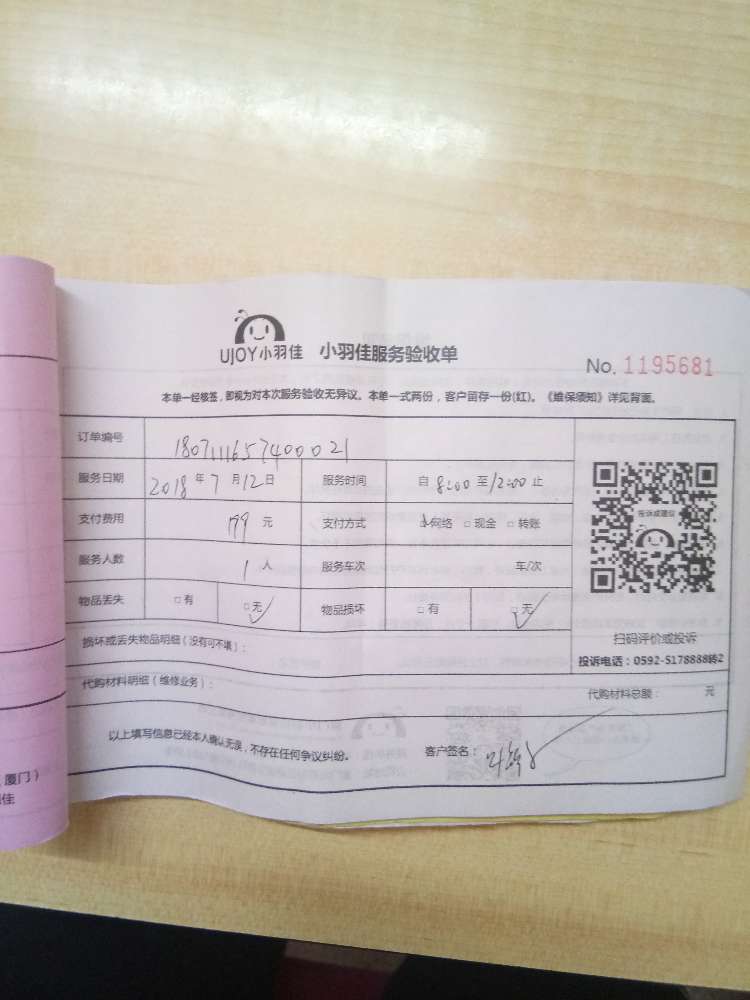 UJOY小羽佳 小羽佳服务验收单
No. 1195681
本单一经核签，即视为对本次服务验收无异议。本单一式两份，客户留存一份(红)。《维保须知》详见背面。
订单编号 18071116574000021
服务日期 2018年7月12日 服务时间 自8:00至12:00止
支付费用 199元 支付方式 网络 □现金 □转账
服务人数 1人 服务车次 车/次
物品丢失 □有 □无 物品损坏 □有 □无
投诉或建议
扫码评价或投诉
投诉电话：0592-5178888转2
损坏或丢失物品明细（没有可不填）：
代购材料明细（维修业务）： 代购材料总额： 元
以上填写信息已经本人确认无误，不存在任何争议纠纷。 客户签名：
厦门）
佳